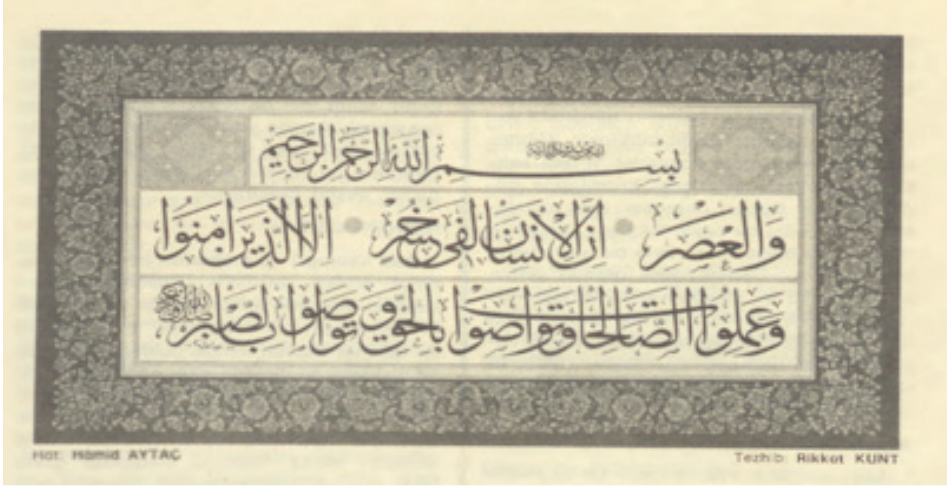 بِسْمِ اللّٰهِ الرَّحْمٰنِ الرَّحِيمِ
وَالْعَصْرِ اِنَّ الْاِنْسَانَ لَفِى خُسْرٍ اِلَّا الَّذِينَ اٰمَنُوا
وَعَمِلُوا الصَّالِحَاتِ وَتَوَاصَوْا بِالْحَقِّ وَتَوَاصَوْا بِالصَّبْرِ
Hat: Hâmid AYTAÇ
Tezhib: Rikkat KUNT